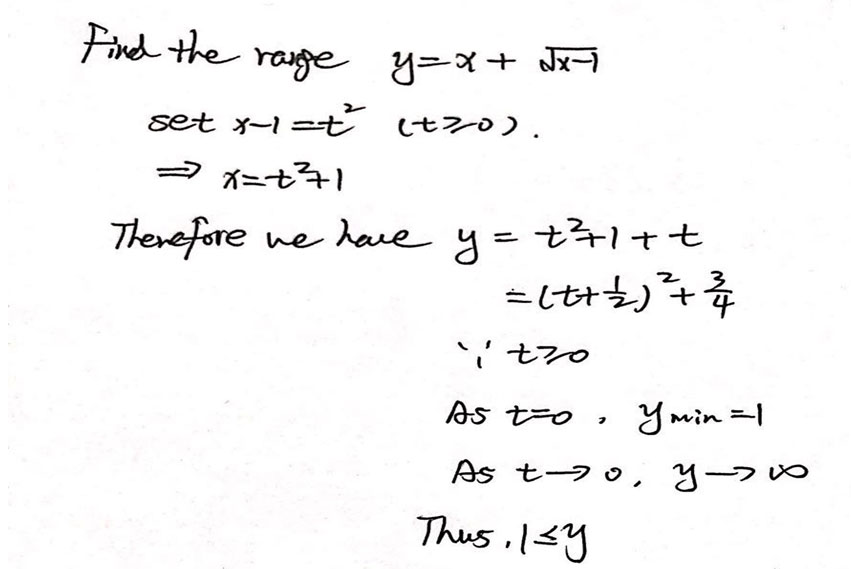 Find the range y=x+√x-1
set x-1=t² (t≥0).
⇒ x=t²+1
Therefore we have y = t²+1+t
=(t+1/2)²+3/4
∵ t≥0
As t=0, y min=1
As t→0, y→∞
Thus, 1≤y